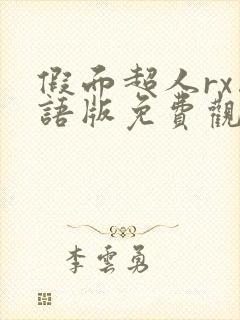 假而超人rx
語版免費觀
李雲勇